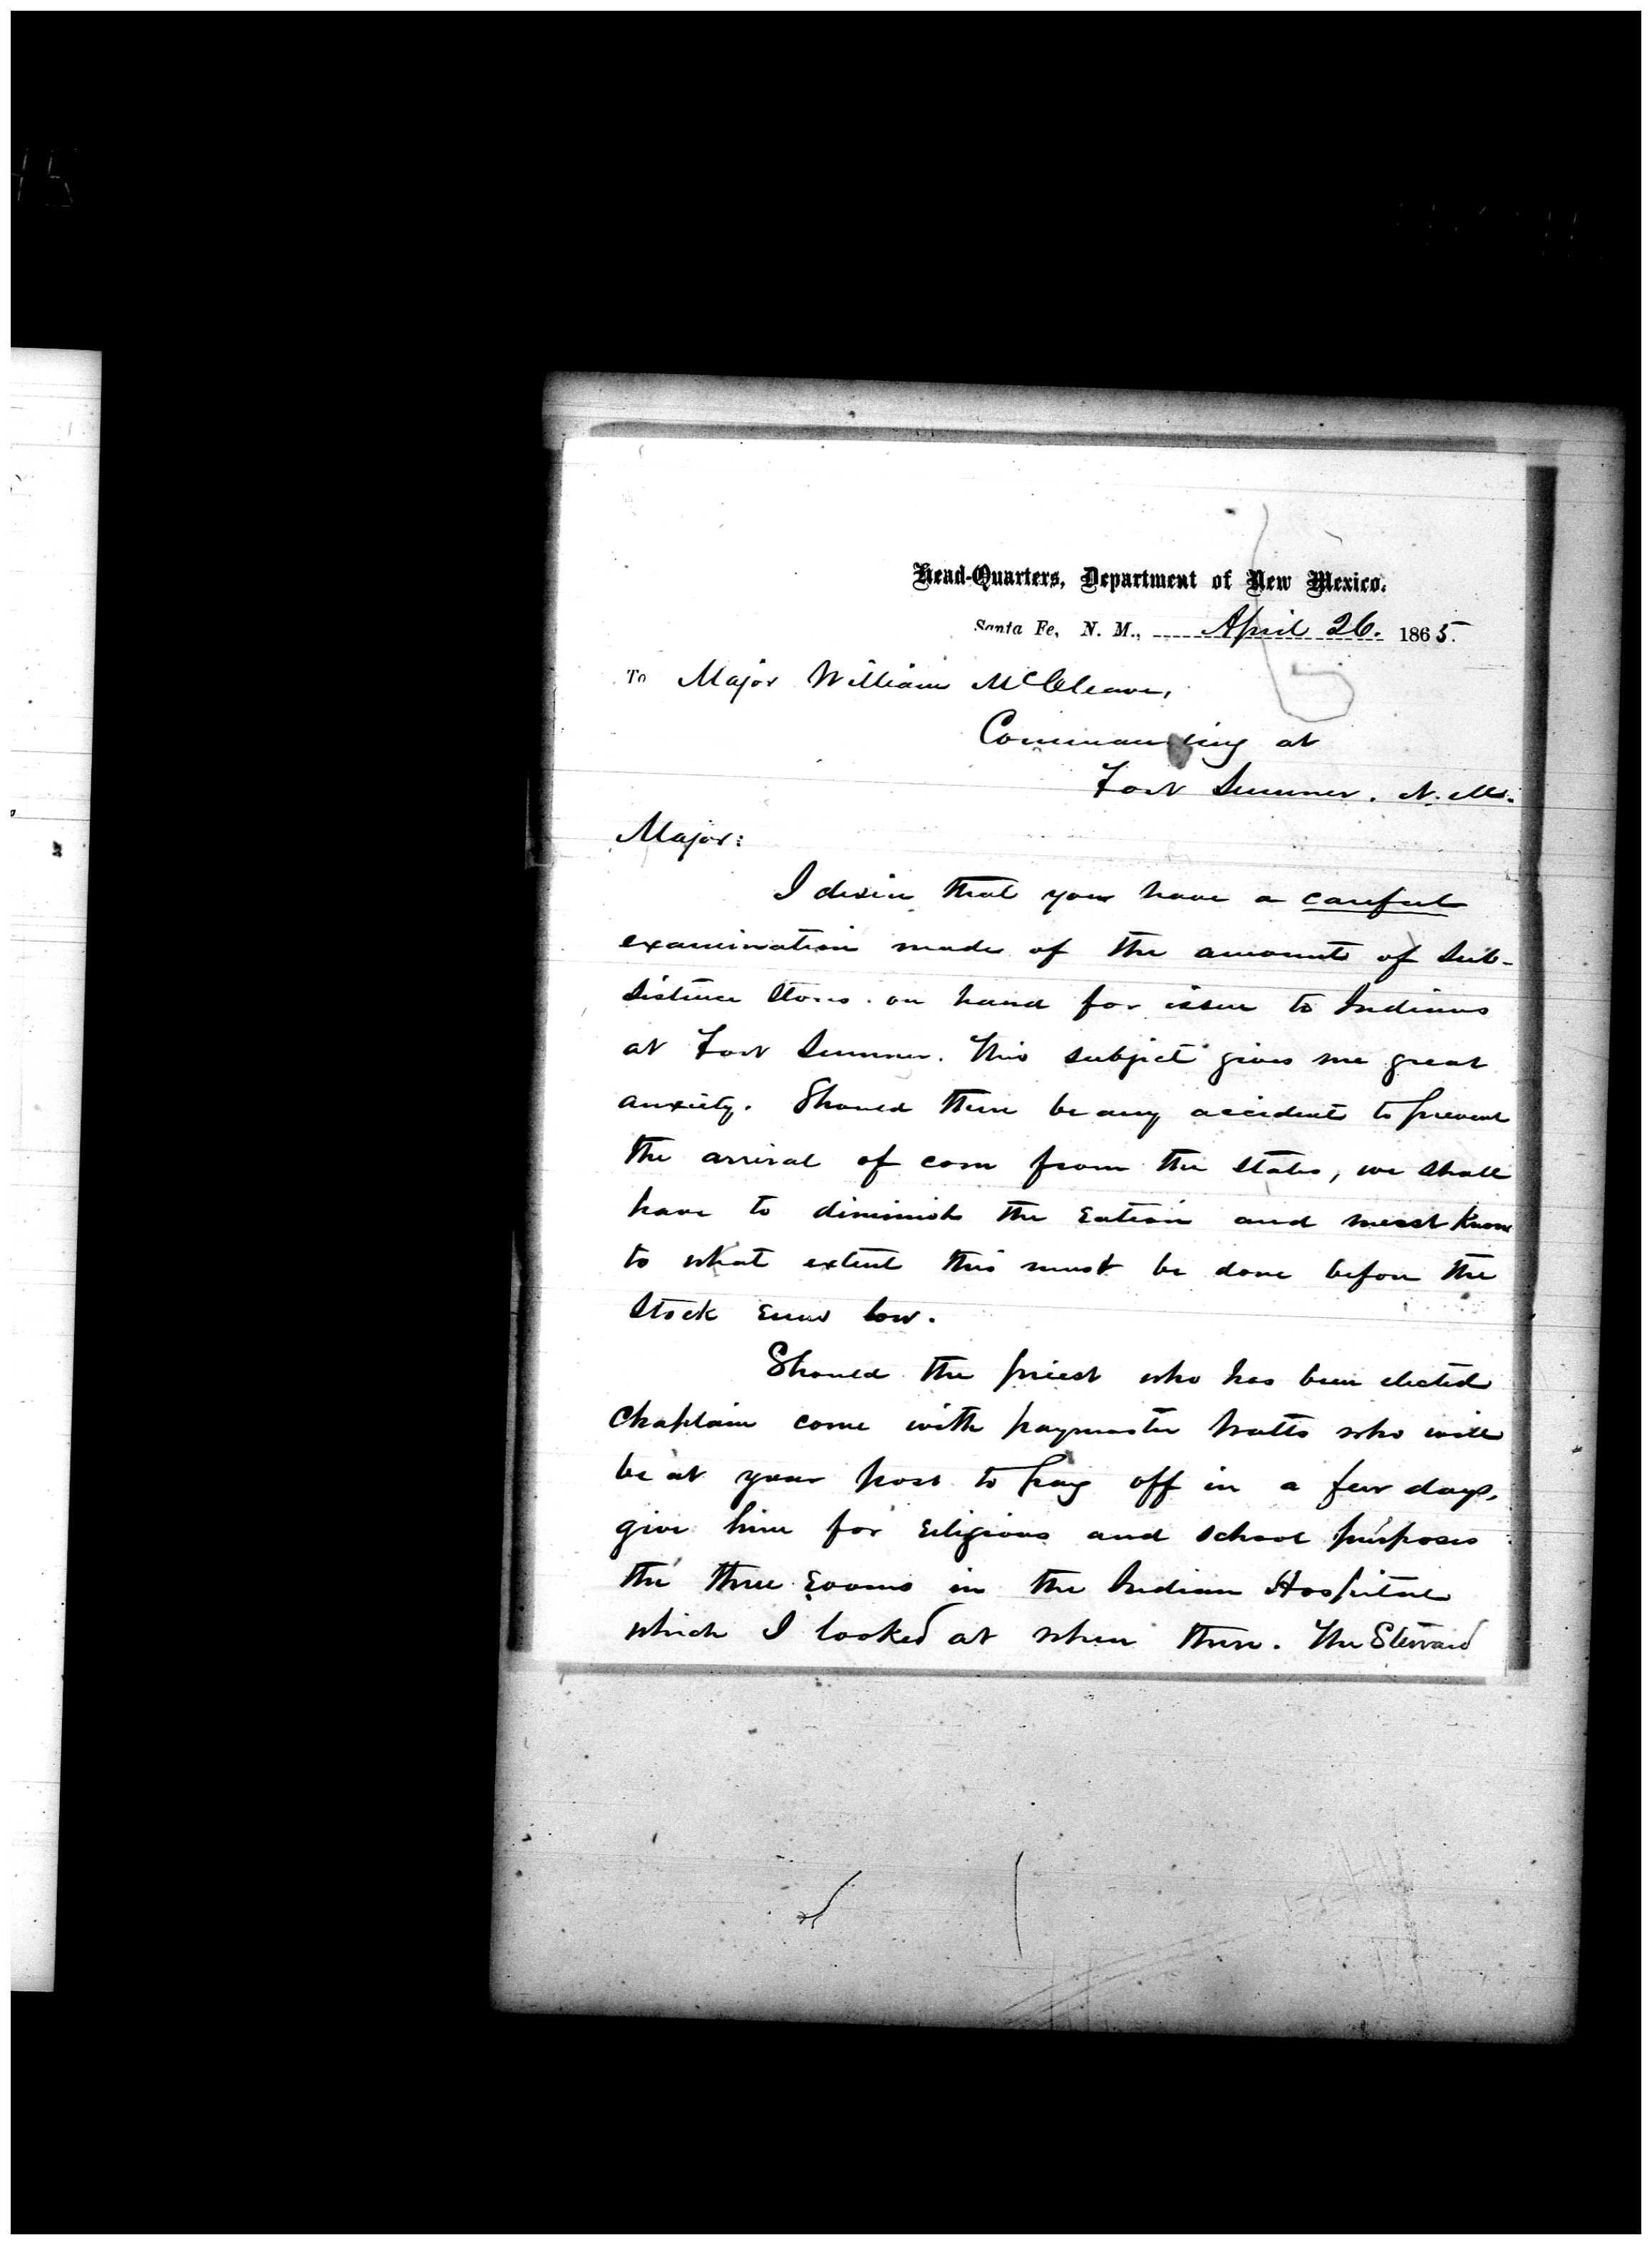 Head-Quarters, Department of New Mexico.
Santa Fe, N. M., April 26. 1865.
To Major William McCleave,
Commanding at
Fort Sumner. N. M.
Major:
I desire that you have a careful
examination made of the amounts of Sub-
sistence Stores on hand for issue to Indians
at Fort Sumner. This subject gives me great
anxiety. Should there be any accident to prevent
the arrival of corn from the States, we shall
have to diminish the ration and must know
to what extent this must be done before the
Stock runs low.
Should the priest who has been elected
Chaplain come with paymaster Watts who will
be at your post to pay off in a few days,
give him for religious and school purposes
the three rooms in the Indian Hospital
which I looked at when there. The Steward